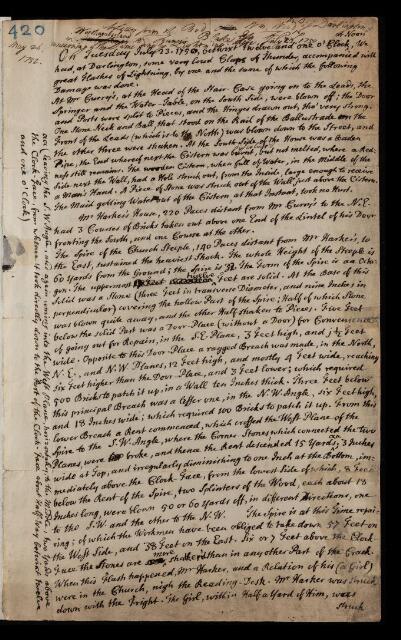 420
May 24. 1752.
at Noon
On Tuesday July 23. 1750, betwixt Twelve and one o'Clock, We
had at Darlington, some very loud Claps of Thunder, accompanied with
great Flashes of Lightning, by one and the same of which the following
Damage was done.
At Mr Curry's, at the Head of the Stair Case going on to the Leads, the
Springer and the Water-Table, on the South Side, were blown off; the Door
and Posts were split to Pieces, and the Hinges drawn out, tho' very strong.
One Stone Neck and Ball that stood on the Rail of the Ballustrade on the
Front of the Leads (which is to the North) was blown down to the Street, and
the other three were shaken. At the South Side of the House was a Leaden
Pipe, the End whereof next the Cistern was but not melted, where a Red-
ness still remains. The wooden Cistern, when full of Water, in the Middle of the
Side next the Wall, had a Hole struck out, from the Inside, large enough to receive
a Man's Hand. A Piece of Stone was struck out of the Wall, just above the Cistern.
The Maid getting Water out of the Cistern at that Instant, took no Hurt.
Mr Harker's House, 220 Paces distant from Mr Curry's to the N.E.
had 3 Courses of Bricks taken out above one End of the Lintel of his Door
fronting the South, and one Course at the other.
The Spire of the Church Steeple, 140 Paces distant from Mr Harker's, to
the East, sustained the heaviest Shock. The whole Height of the Steeple is
60 Yards from the Ground; the Spire is The Form of the Spire is an Octa-
gon. The uppermost twelve Feet are solid. At the Base of this
Solid was a Stone (three Feet in transverse Diameter, and nine Inches in
perpendicular) covering the hollow Part of the Spire; Half of which Stone
was blown quite away, and the other Half shaken to Pieces. Five Feet
below the solid Part was a Door-Place (without a Door) for Convenience
of going out for Repair, in the S.E. Plane, 3 Feet high, and Feet
wide. Opposite to this Door-Place a ragged Breach was made, in the North,
N.E., and N.W. Planes, 12 Feet high, and mostly 4 Feet wide, reaching
six Feet higher than the Door-Place, and 3 Feet lower; which required
500 Bricks to patch it up, in a Wall ten Inches thick. Three Feet below
this principal Breach was a lesser one, in the N.W. Angle, six Feet high,
and 18 Inches wide; which required 100 Bricks to patch it up. From this
lower Breach a Rent commenced, which crossed the West Plane of the
Spire to the S.W. Angle, where the Corner Stones, which connected the two
Planes, were broke, and thence the Rent descended 15 Yards, 3 Inches
wide at Top, and irregularly diminishing to one Inch at the Bottom, im-
mediately above the Clock-Face, from the lowest Side of which, 8 Feet
below the Rent of the Spire, two Splinters of the Wood, each about 18
Inches long, were blown 50 or 60 Yards off, in different Directions, one
to the S.W. and the other to the N.W. The Spire is at this Time repair-
ing; of which the Workmen have been obliged to take down 57 Feet on
the West Side, and 38 Feet on the East. Six or 7 Feet above the Clock-
Face the Stones are more shattered than in any other Part of the Crack.
When this Flash happened, Mr Harker, and a Relation of his (a Girl)
were in the Church, nigh the Reading-Desk. Mr Harker was struck
down with the Fright. The Girl, within Half a Yard of Him, was
struck